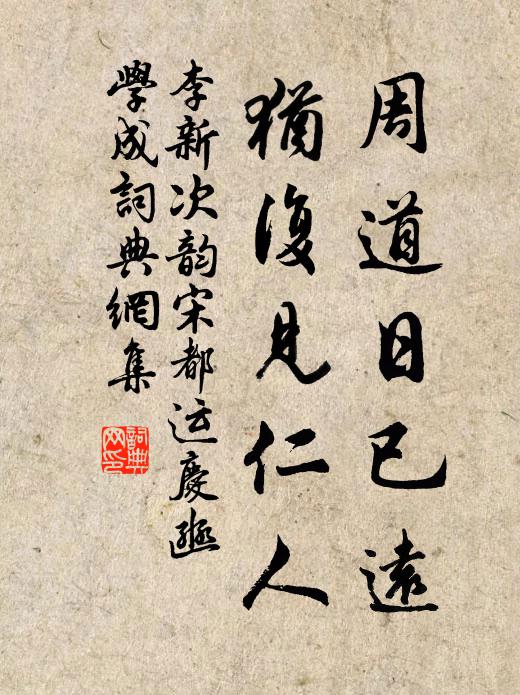 周道日已遠
猶復見仁人
李新次韵宋都运慶
學成詞典網集
詞典
网印